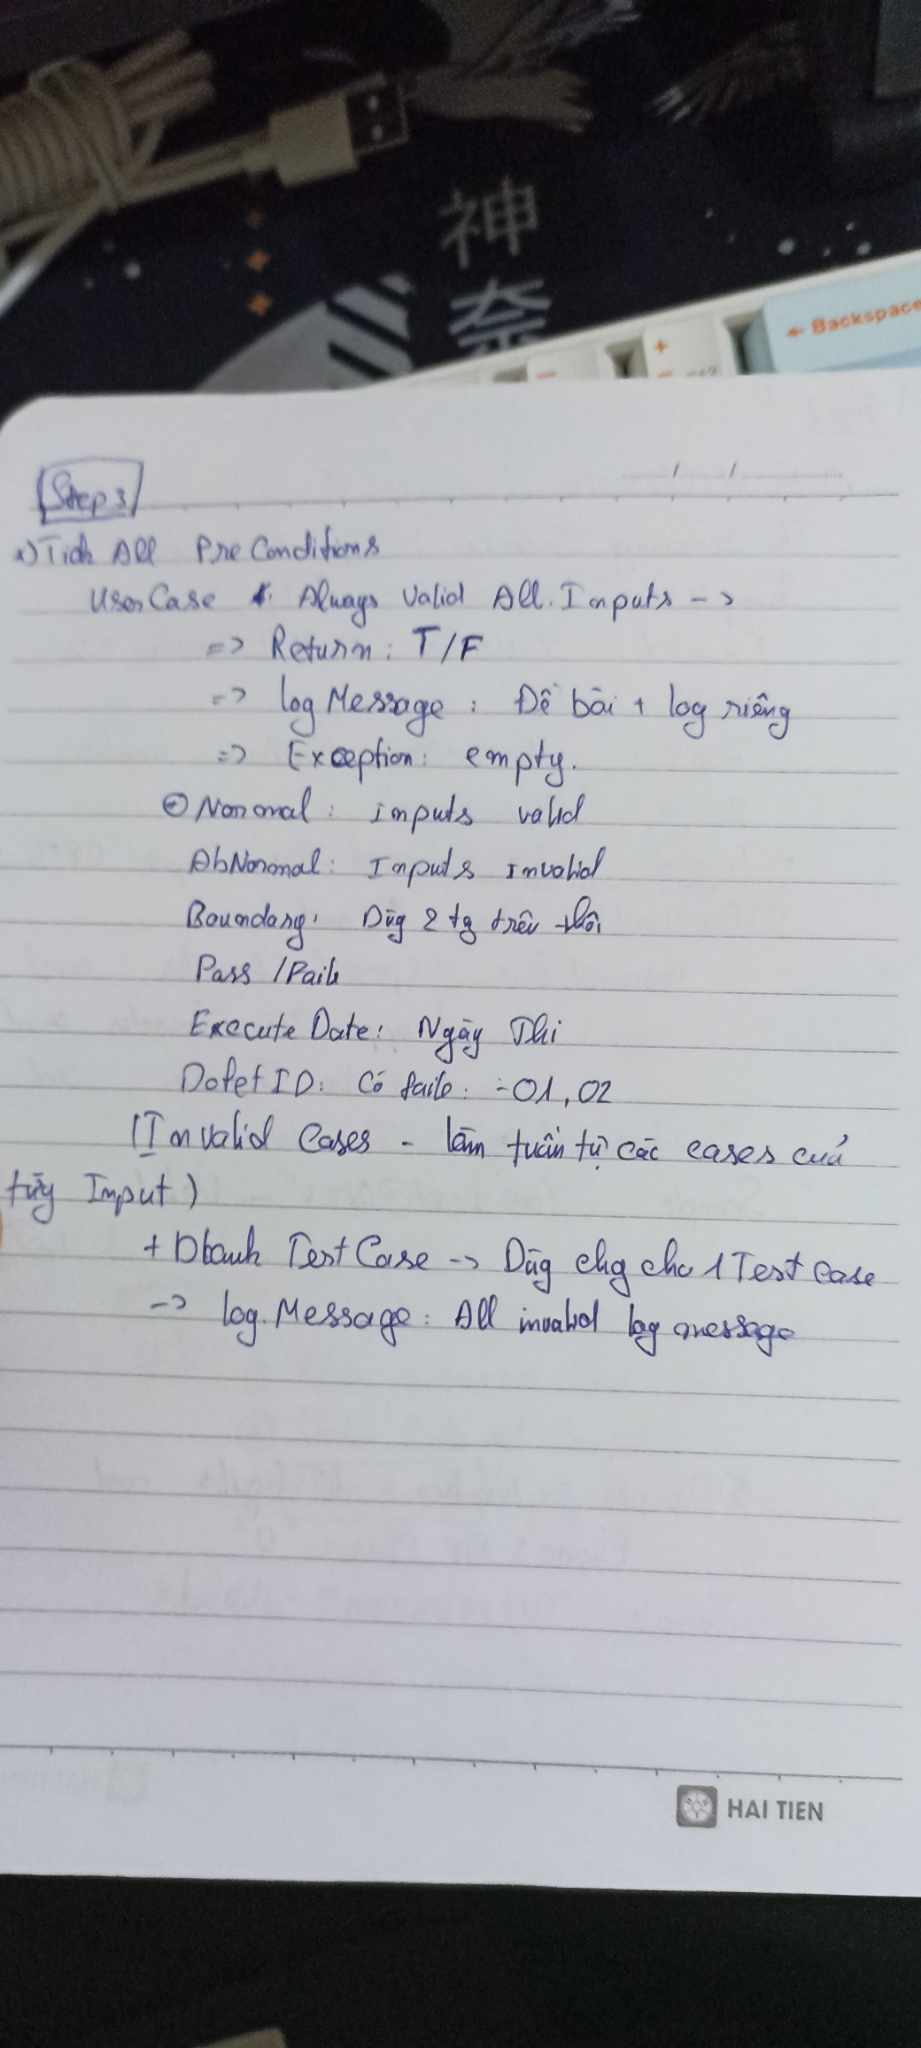 神
奈
← Backspace
+
Step 3
Tick All PreConditions
User Case 1: Always Valid All Inputs ->
=> Return: T/F
=> log Message: Đề bài + log riêng
=> Exception: empty.
Normal: inputs valid
AbNormal: Inputs Invalid
Boundary: Dùg 2 tg trên thôi
Pass / Faile
Execute Date: Ngày Thi
Defet ID: Có faile: -01, 02
(Invalid Cases - làm tuần tự các cases cuả
từg Input)
+ Dbank TestCase -> Dùg chg cho 1 Test case
-> log Message: All invalid log message
HAI TIEN